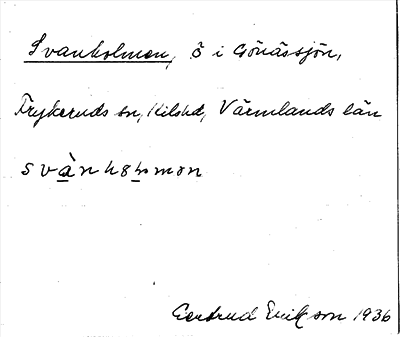 Svanholmen, ö i Gönässjön,
Frykeruds sn, Kils hd, Värmlands län
Gertrud Ericson 1936